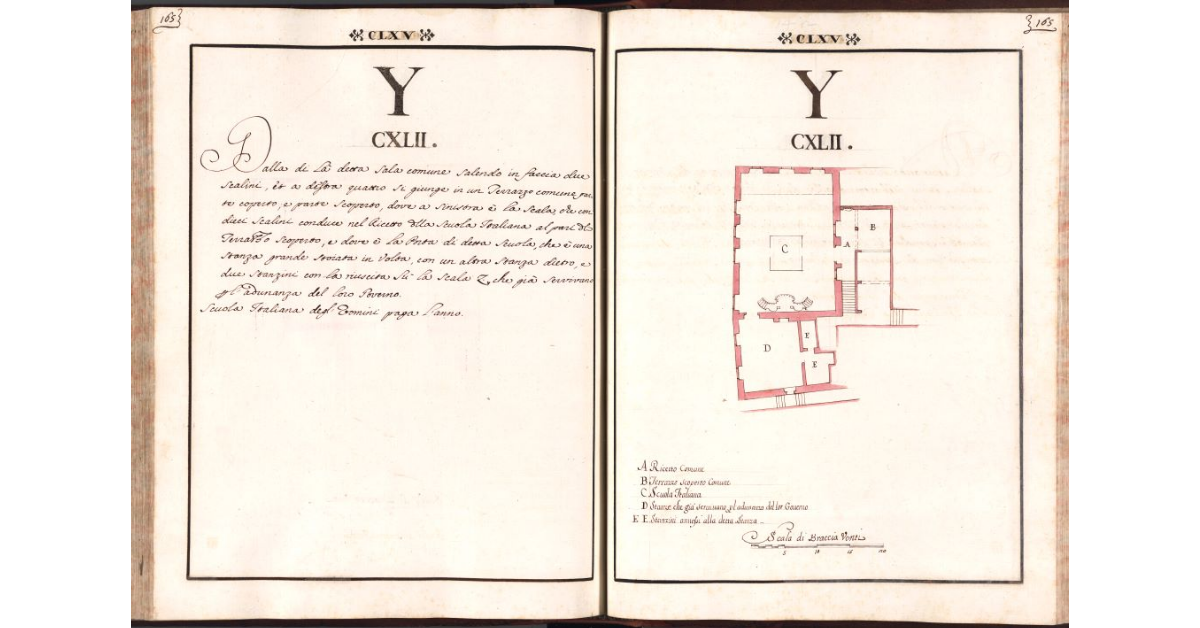 165
CLXV
Y
CXLII.
Dalla di là detta Sala comune salendo in faccia due
scalini, èt a destra quattro si giunge in un Terrazzo comune par
te coperto, e parte scoperto, dove a sinistra è la Scala, che con
dieci scalini conduce nel Ricetto della Scuola Italiana al pari del
Terrazzo scoperto, e dove è la Porta di detta Scuola, che è una
stanza grande stoiata in volta, con un altra stanza dietro, e
due stanzini con la riuscita sù la scala Z, che già servivano
p l'adunanza del loro Governo.
Scuola Italiana degl' Uomini paga l'anno.
165
CLXV
Y
CXLII.
C
A
B
D
E
E
A Ricetto Comune
B Terrazzo scoperto Comune
C Scuola Italiana
D Stanze che già servivano pl adunanza del lor Governo
E E Stanzini annessi alla detta Stanza
Scala di Braccia Venti
5 10 15 20